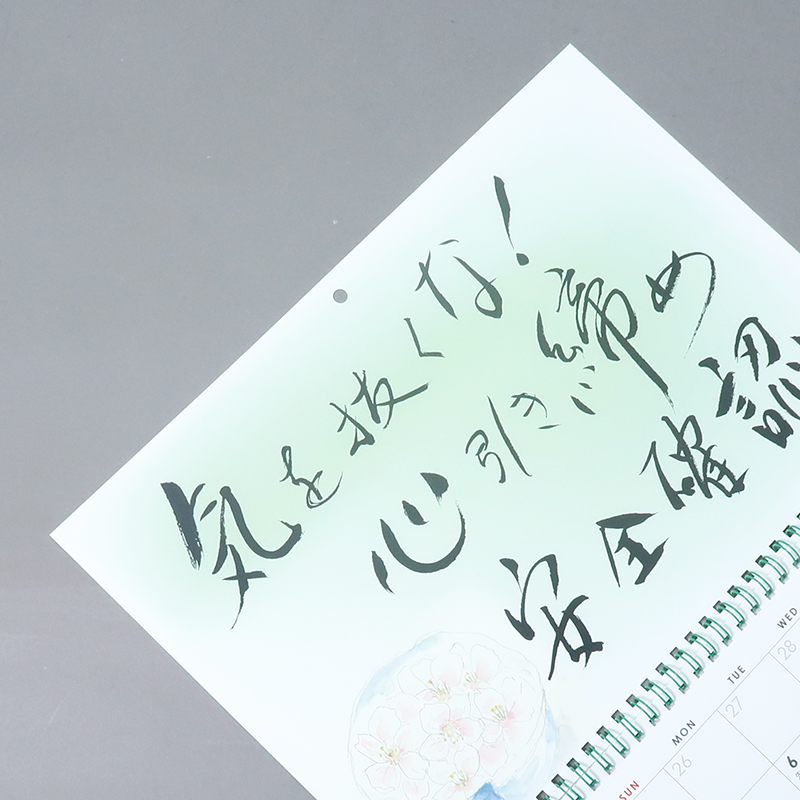 気を抜くな！
心引き締め
安全確認
SUN MON TUE WED
26 27 28
6